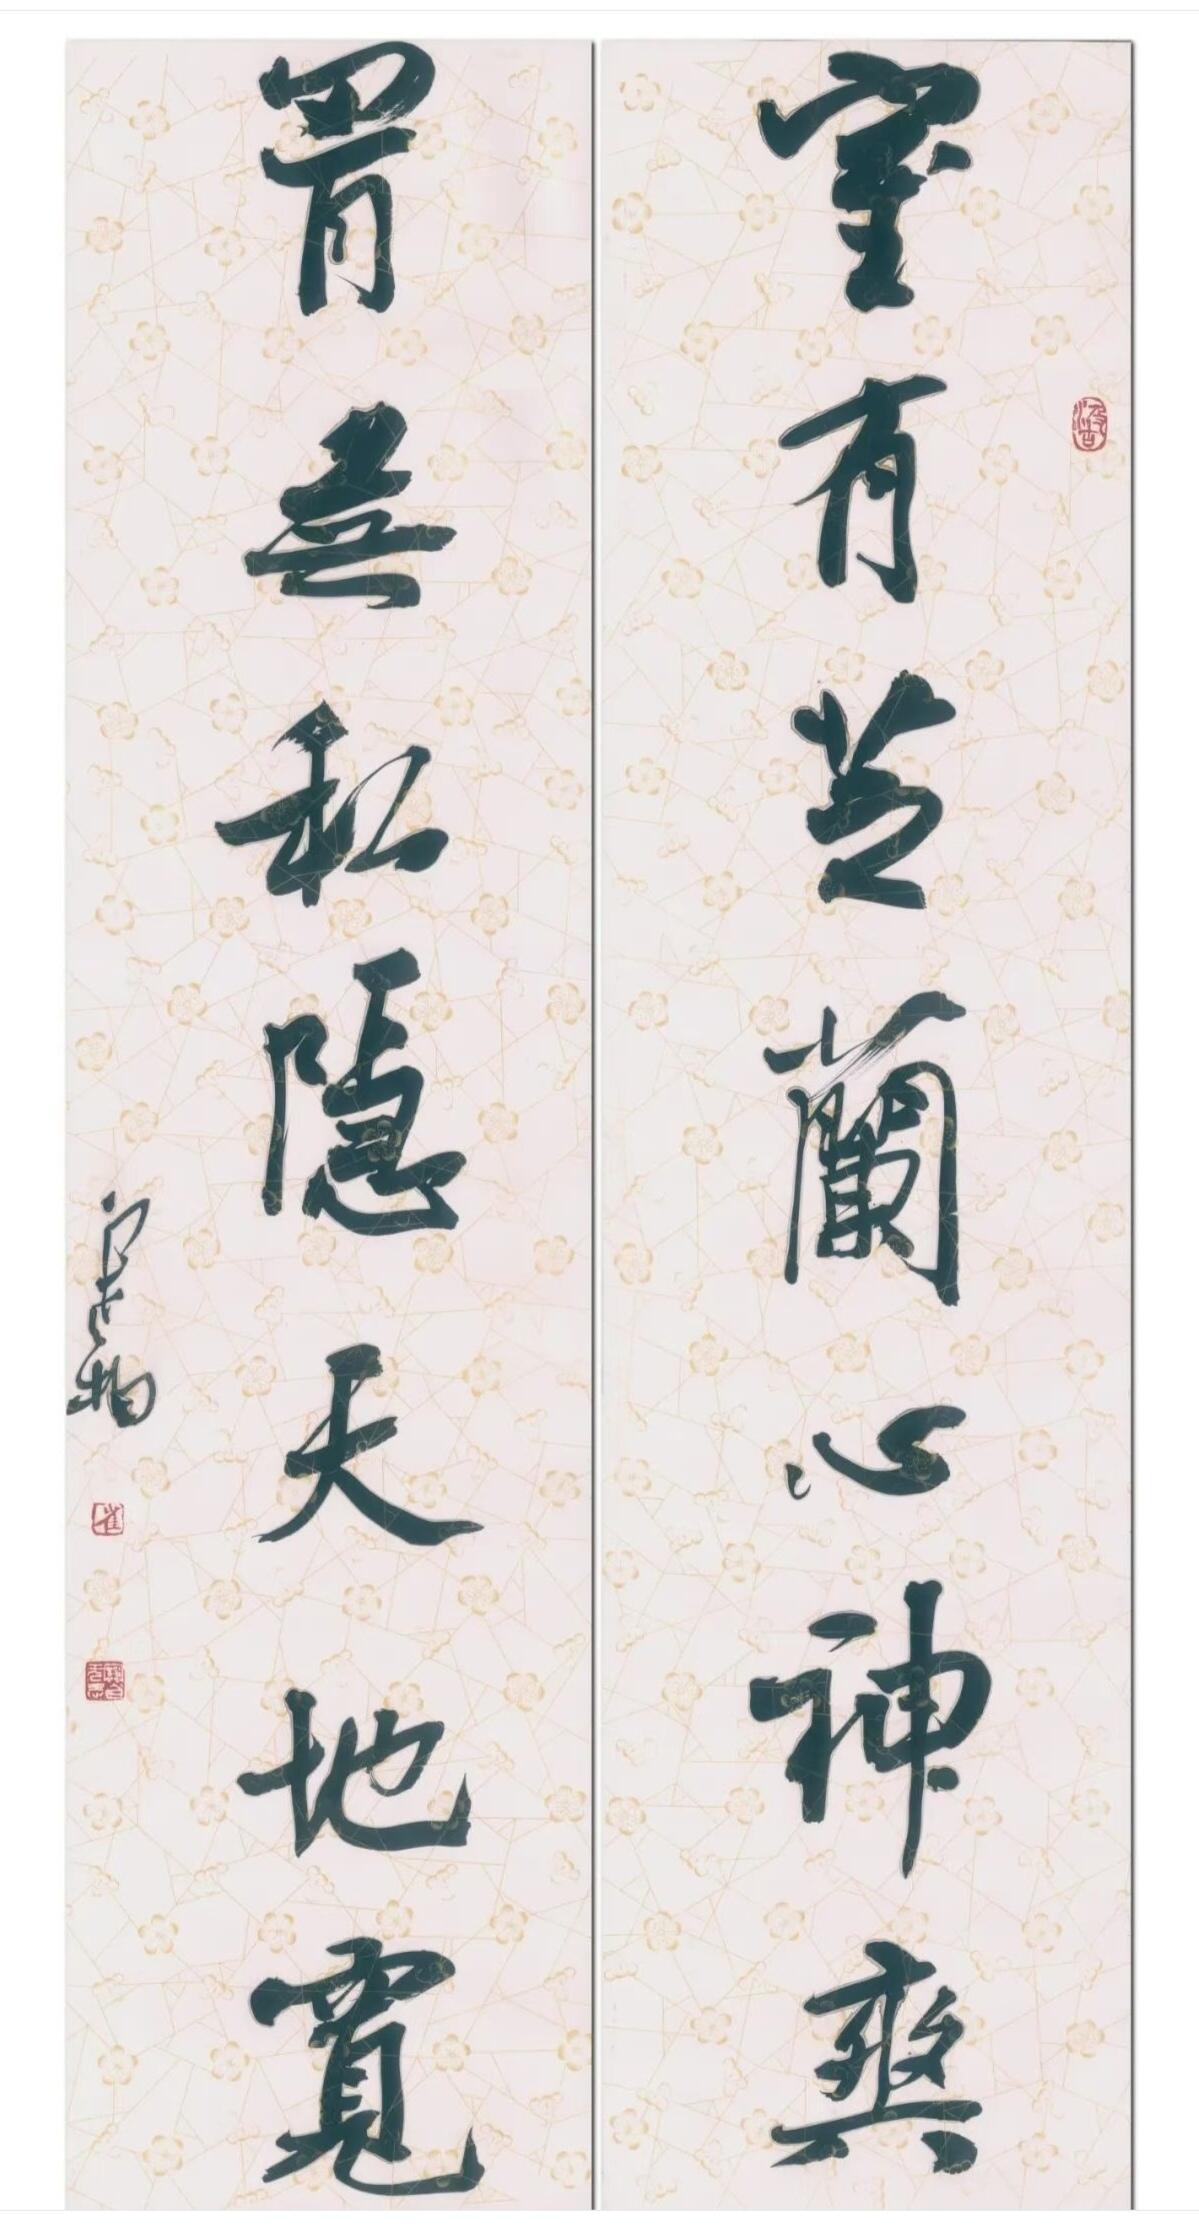 室有芝蘭心神爽
胷無私隱天地寬